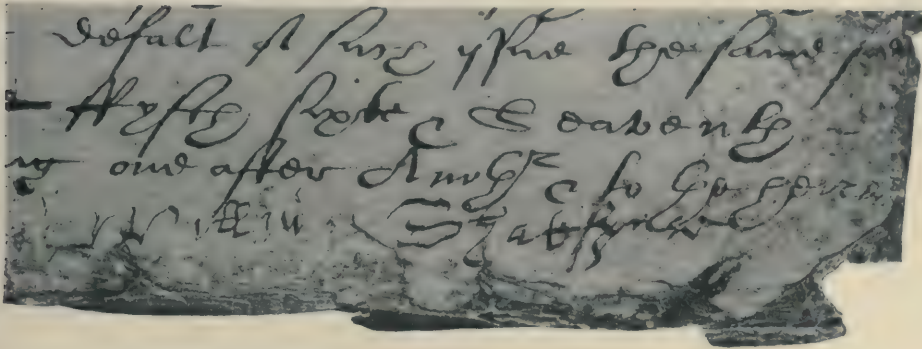 defalt of such yssue the same
ffyfth sixte & Seaventh
ng one after Anothr & to the heires
Willm Shakspere